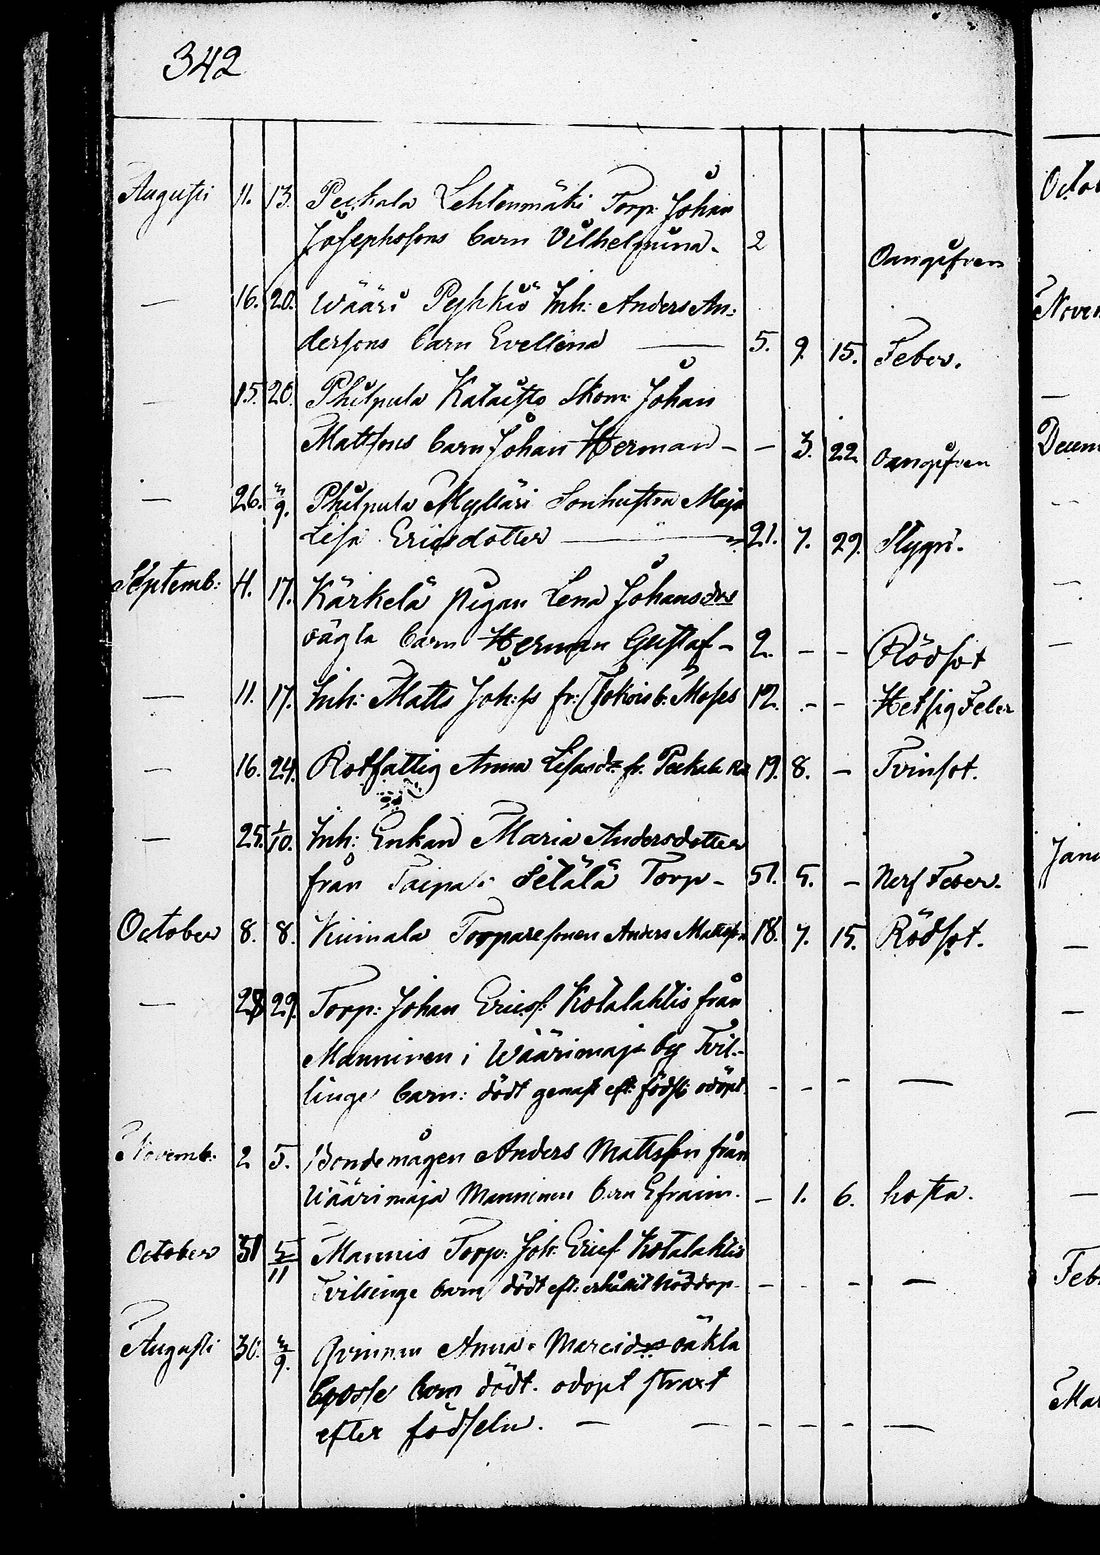 342
Augusti 11. 13. Peckala Lehtenmäki Torp: Johan
Josephssons barn Vilhelmina - 2 Oangifven
— 16. 20. Wääri Peyhkiö Inh: Anders An-
derssons barn Evelina — 5. 9. 15. Feber.
— 15. 20. Philpula Kataisto Skom: Johan
Mattssons barn Johan Herman - - 3. 22. Oangifven
— 26. 2/9. Philpula Mylläri Sonhustru Maja
Lisa Ericsdotter — 21. 7. 29. Slygn.
Septemb: 4. 17. Kärkelä pigan Lena Johansdrs
oägta barn Herman Gustaf - 2. - - Rödsot
— 11. 17. Inh: Matts Joh:s fr: Jokois b. Moses 12. - - Hetsig Feber
— 16. 24. Rotfattig Anna Lisasdr fr. Peckala 19. 8. - Tvinsot.
— 25. 1/10. Inh: Enkan Maria Andersdotter
från Setälä Torp - 51. 5. - Nerf Feber.
October 8. 8. Torparesonen Anders Mattss:n 18. 7. 15. Rödsot.
— 28 29. Torp: Johan Ericss: Kotalahtis från
Manninen i Wäärimaja by Tvil-
linge barn: dödt genast eft: föds: odöpt. - - - —
Novemb: 2 5. Bondemågen Anders Mattsson från
Wäärimaja Manninen barn Efraim. - 1. 6. hosta.
October 31 5/11 Mannis Torp: Joh: Ericss Kotalahtis
Tvillinge barn dödt eft: erhållit Nöddop - - - —
Augusti 30. 2/9. Qvinnan Anna Marcidr oäkta
Gosse barn dödt. odöpt straxt
efter födseln. — — - - - —
Octo
Novem
—
Decem
—
—
—
Janu
—
—
—
—
Feb
Mar